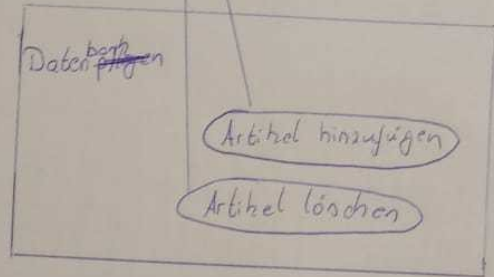 Datenbank
Artikel hinzufügen
Artikel löschen